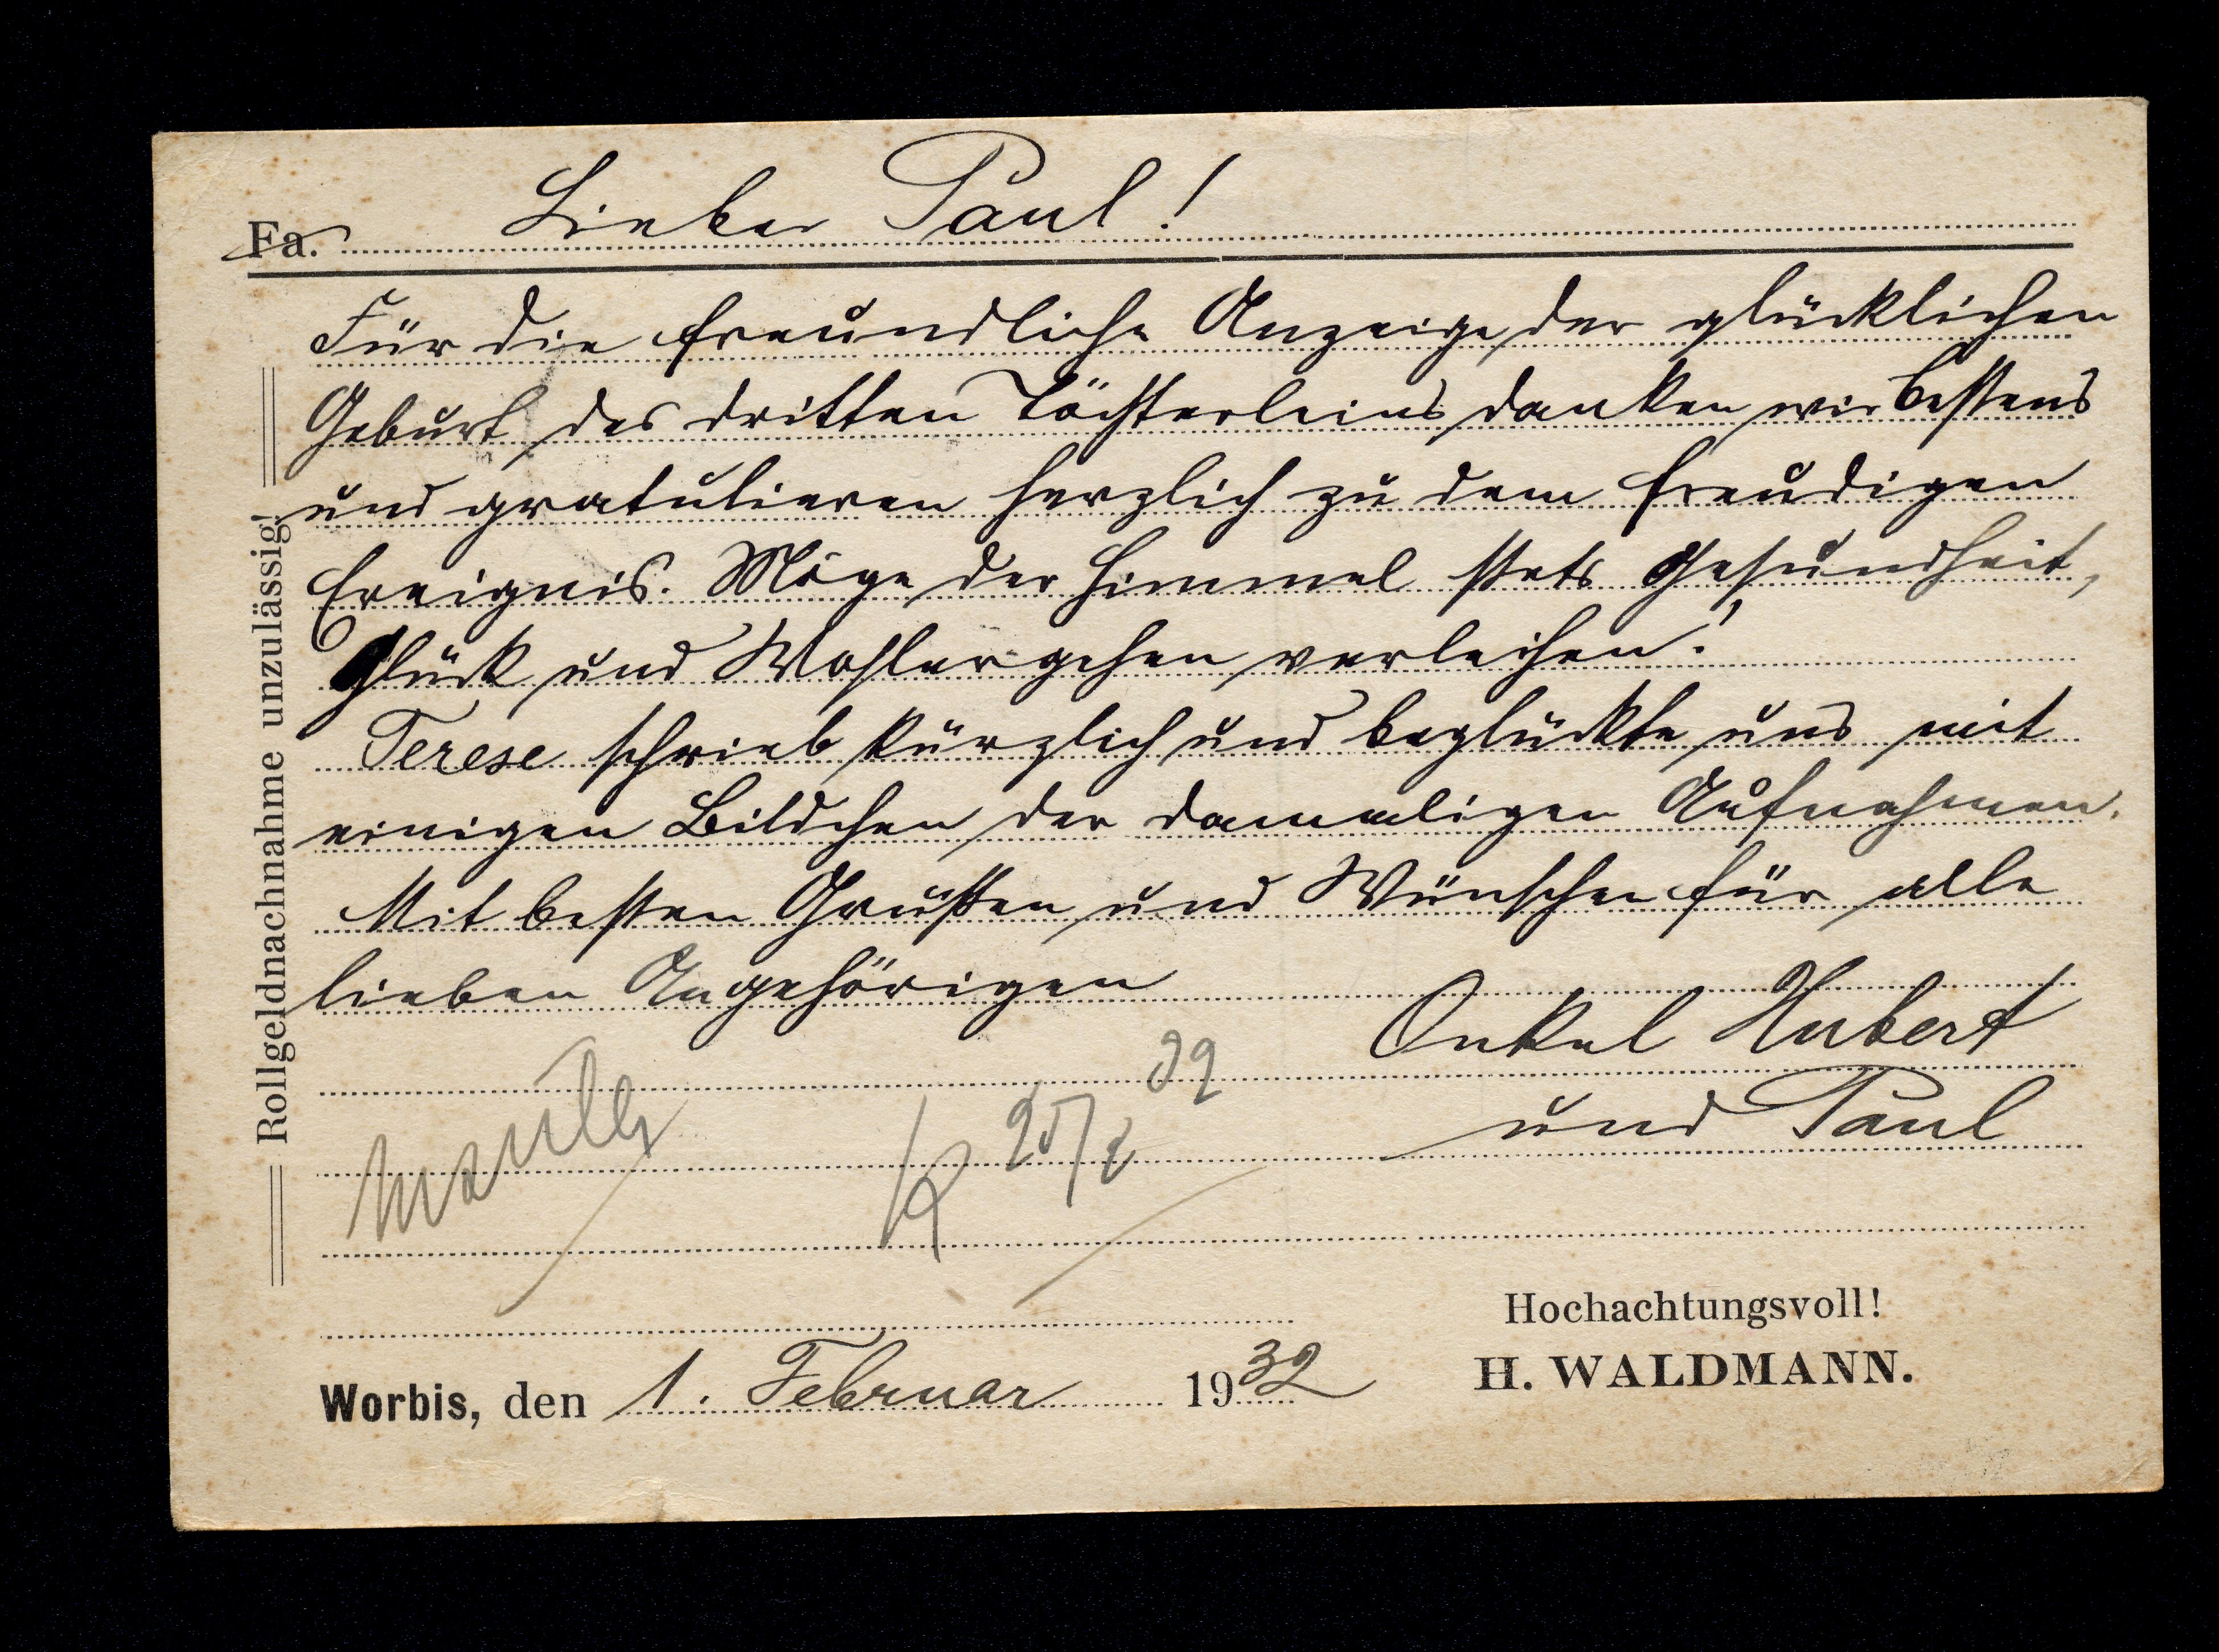 Lieber Paul!
Fa.
Für die freundliche Anzeige der glücklichen
Geburt des dritten Töchterleins danken wir bestens
und gratulieren herzlich zu dem freudigen
Ereignis. Möge der Himmel stets Gesundheit,
Glück und Wohlergehen verleihen!
Terese schrieb kürzlich und beglückte uns mit
einigen Bildchen der damaligen Aufnahmen.
Mit besten Grüßen und Wünschen für alle
lieben Angehörigen
Onkel Hubert
und Paul
Rollgeldnachnahme unzulässig!
Hochachtungsvoll!
H. WALDMANN.
Worbis, den 1. Februar 1932